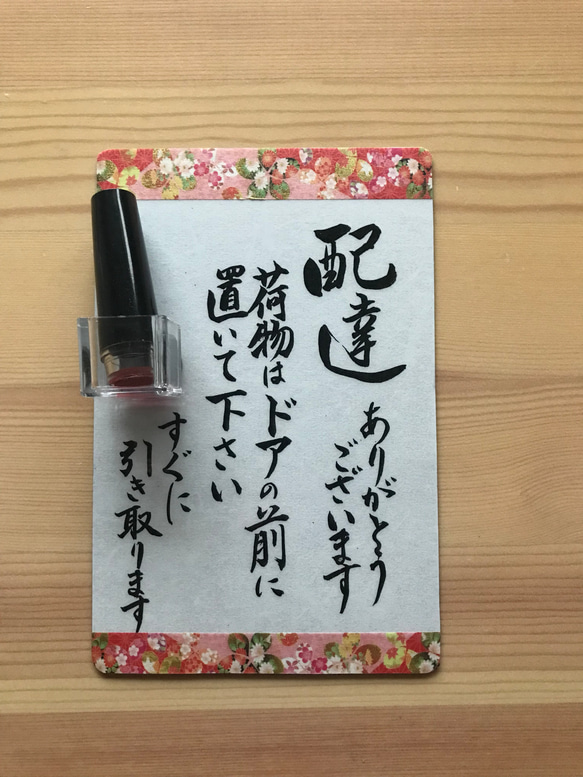 配達
ありがとう
ございます
荷物はドアの前に
置いて下さい
すぐに
引き取ります